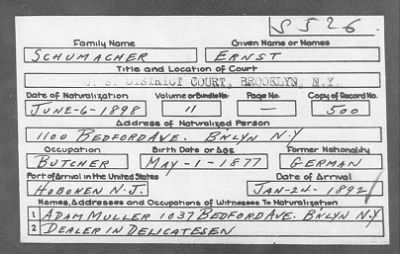 S526
Family Name Given Name or Names
SCHUMACHER ERNST
Title and Location of Court
U. S. DISTRICT COURT, BROOKLYN, N.Y.
Date of Naturalization Volume or Bundle No. Page No. Copy of Record No.
JUNE-6-1898 11 — 500
Address of Naturalized Person
1100 BEDFORD AVE. B'KLYN N.Y
Occupation Birth Date or Age Former Nationality
BUTCHER MAY-1-1877 GERMAN
Port of Arrival in the United States Date of Arrival
HOBOKEN N.J. JAN-24-1892
Names, Addresses and Occupations of Witnesses To Naturalization
1 ADAM MULLER 1037 BEDFORD AVE. B'KLYN N.Y
2 DEALER IN DELICATESEN